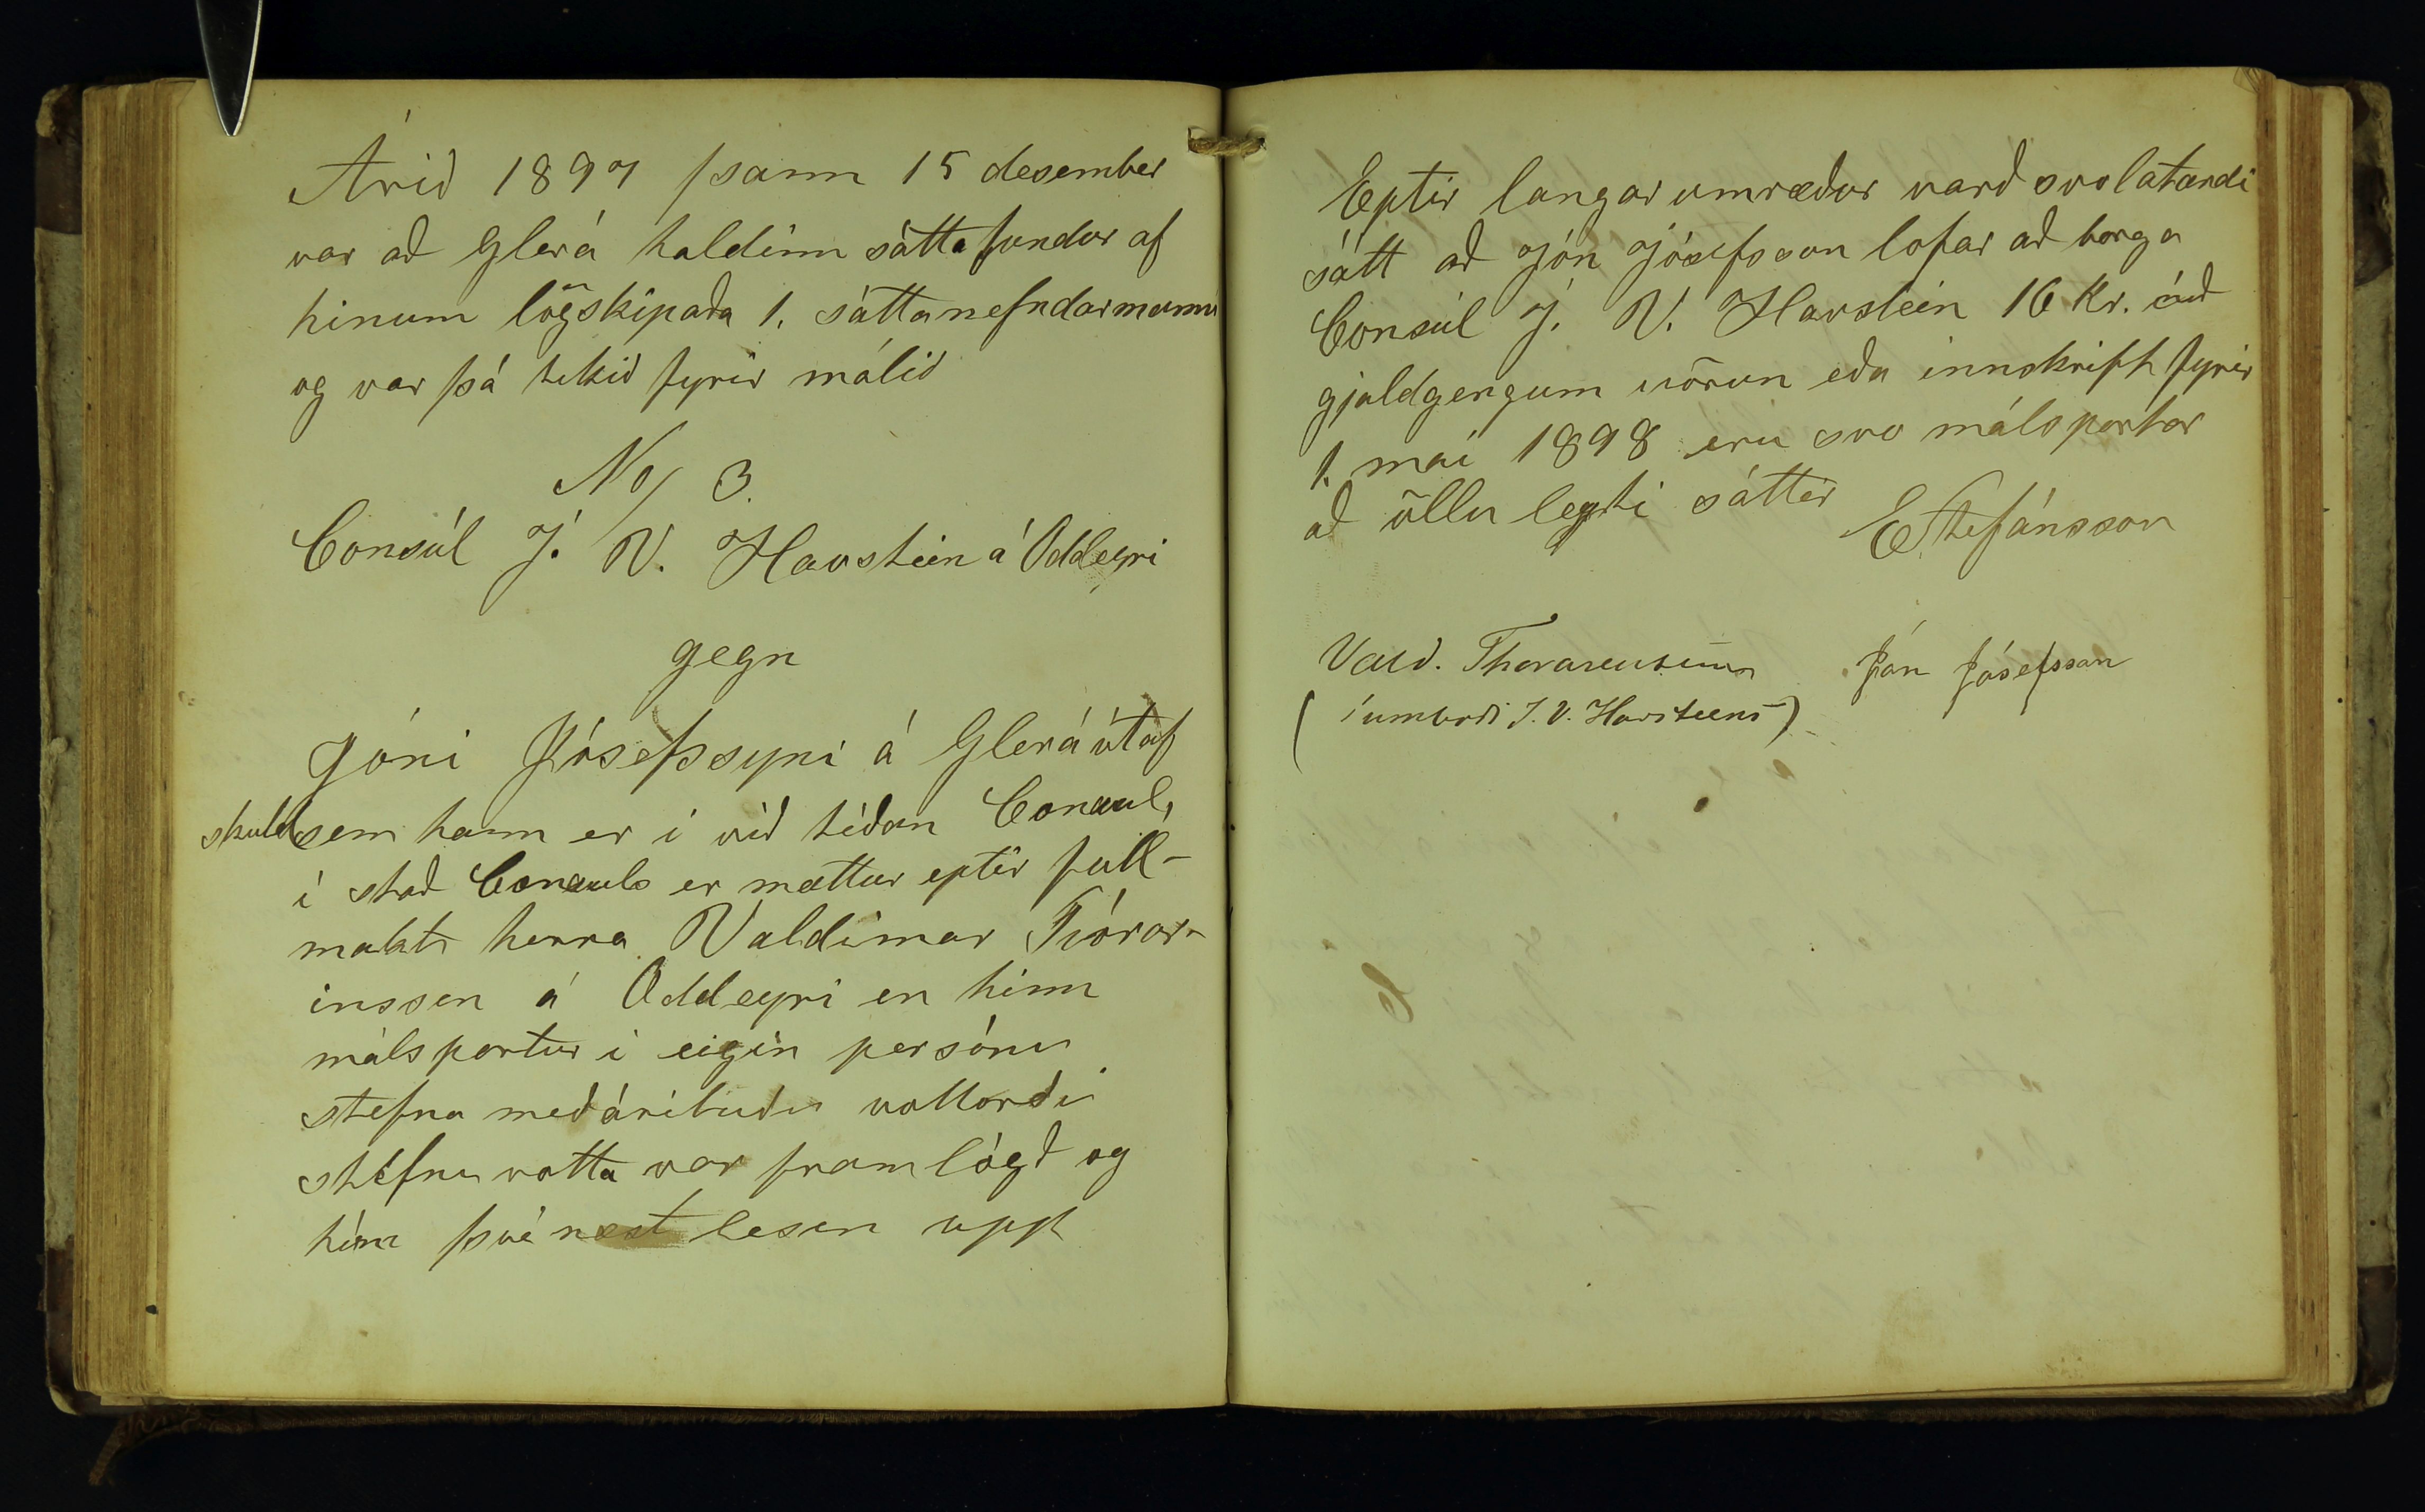 Árið 1897 þann 15 desember
var að Glerá haldinn sáttafundur af
hinum lögskipaða 1. sáttanefndarmanni
og var þá tekið fyrir málið
No/ 3.
Consúl J. V. Havsteen á Oddeyri
gegn
Jóni Jósefssyni á Glerá útaf
skuld sem hann er í við téðan Consul,
í stað Consuls er mættur eptir full-
makt herra Valdimar Þórar-
inssen á Oddeyri en hinn
málspartur í eigin persónu
stefna með árituðu vottorði
stefnu votta var framlögð og
hún því næst lesin uppt
Eptir langar umræður varð svolatandi
sátt að Jón Jósefsson lofar að borga
Consúl J. V. Havsteen 16 kr. í
gjaldgengum vörun eða innskrift fyrir
1. mai 1898 eru svo málspartar
að öllu leyti sáttir
EStefánsson
Vald. Thorarensen
Jón Jósefsson
(í umboði J. V. Havsteens)